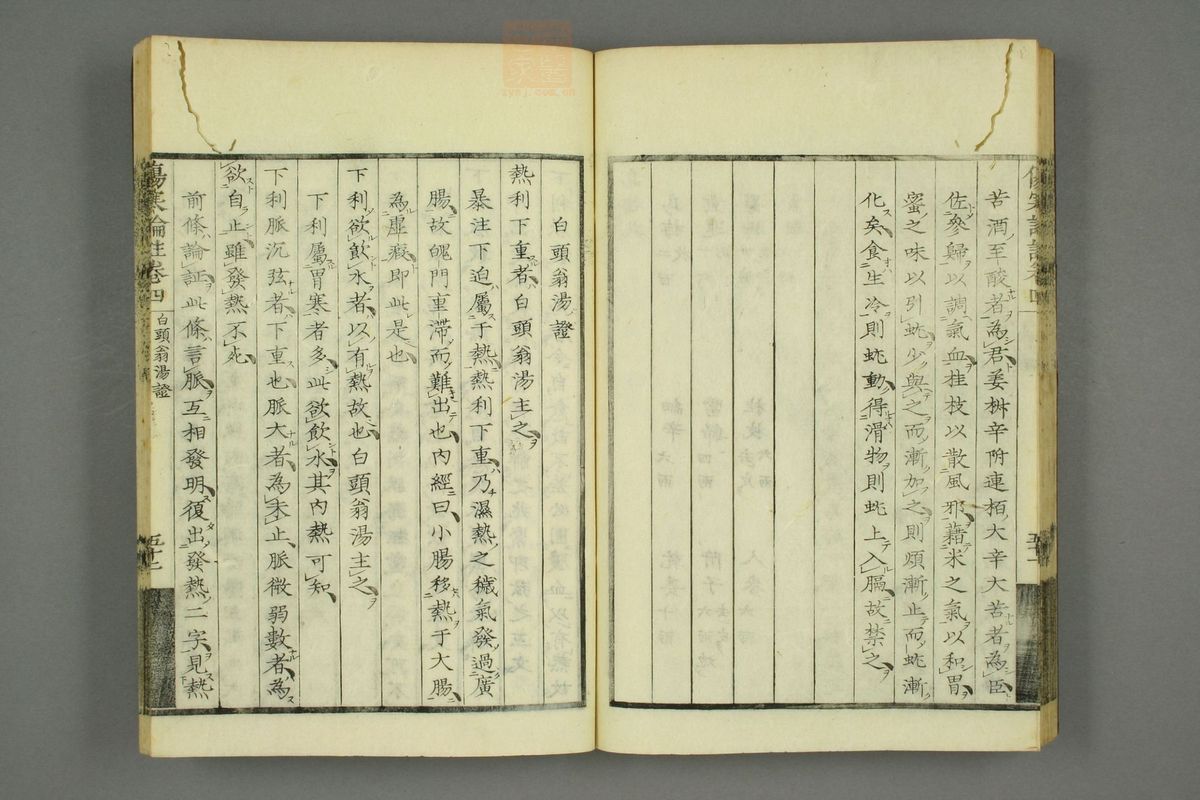 苦酒至酸者為君薑椒辛附連栢大辛大苦者為臣
佐參歸以調氣血桂枝以散風邪藉米之氣以和胃
蜜之味以引蚘少與之而漸加之則煩漸止而蚘漸
化矣食生冷則蚘動得滑物則蚘上入膈故禁之
白頭翁湯證
熱利下重者白頭翁湯主之
暴注下迫屬于熱熱利下重乃濕熱之穢氣發過廣
腸故魄門重滯而難出也內經曰小腸移熱于大腸
為虙瘕即此是也
下利欲飲水者以有熱故也白頭翁湯主之
下利屬胃寒者多此欲飲水其內熱可知
下利脈沉弦者下重也脈大者為未止脈微弱數者為
欲自止雖發熱不死
前條論証此條言脈互相發明復出發熱二字見熱
傷寒論註卷四
白頭翁湯證
五十二
zysj.com.cn